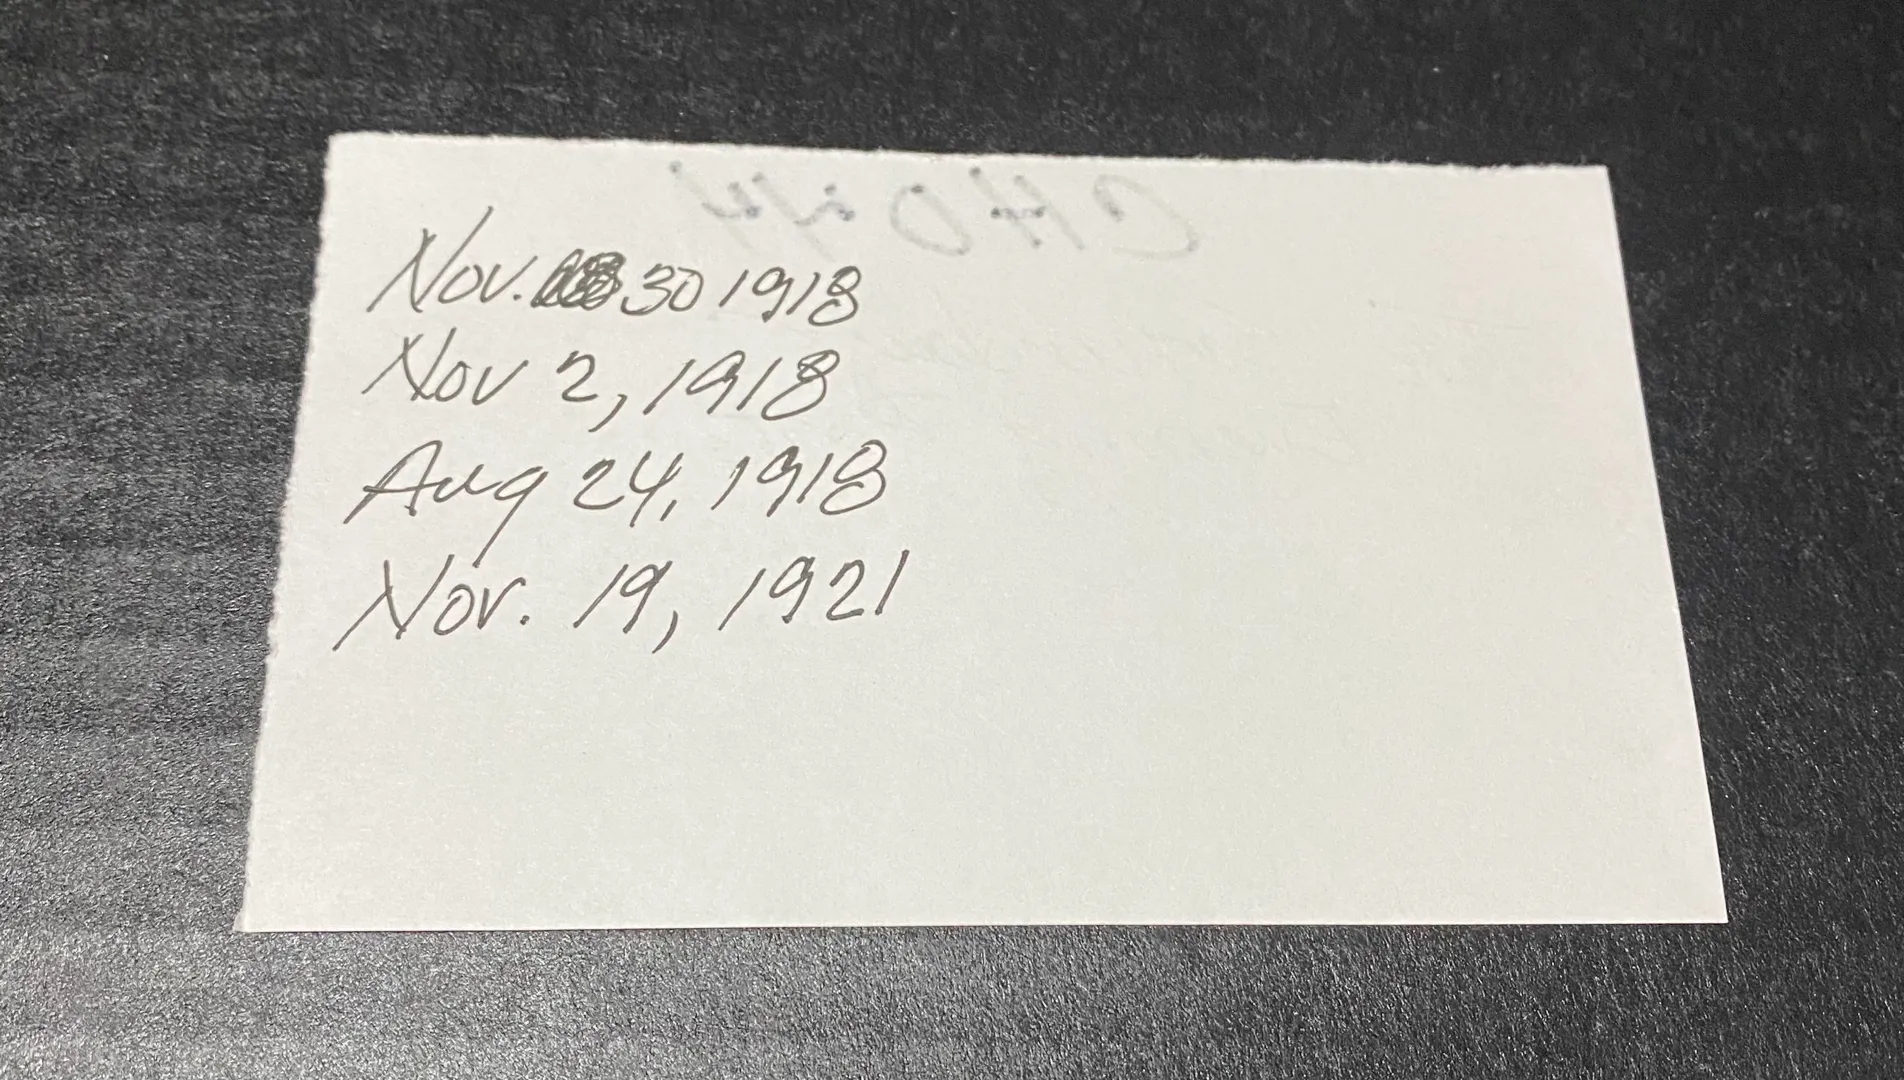 Nov. 30 1918
Nov 2, 1918
Aug 24, 1918
Nov. 19, 1921